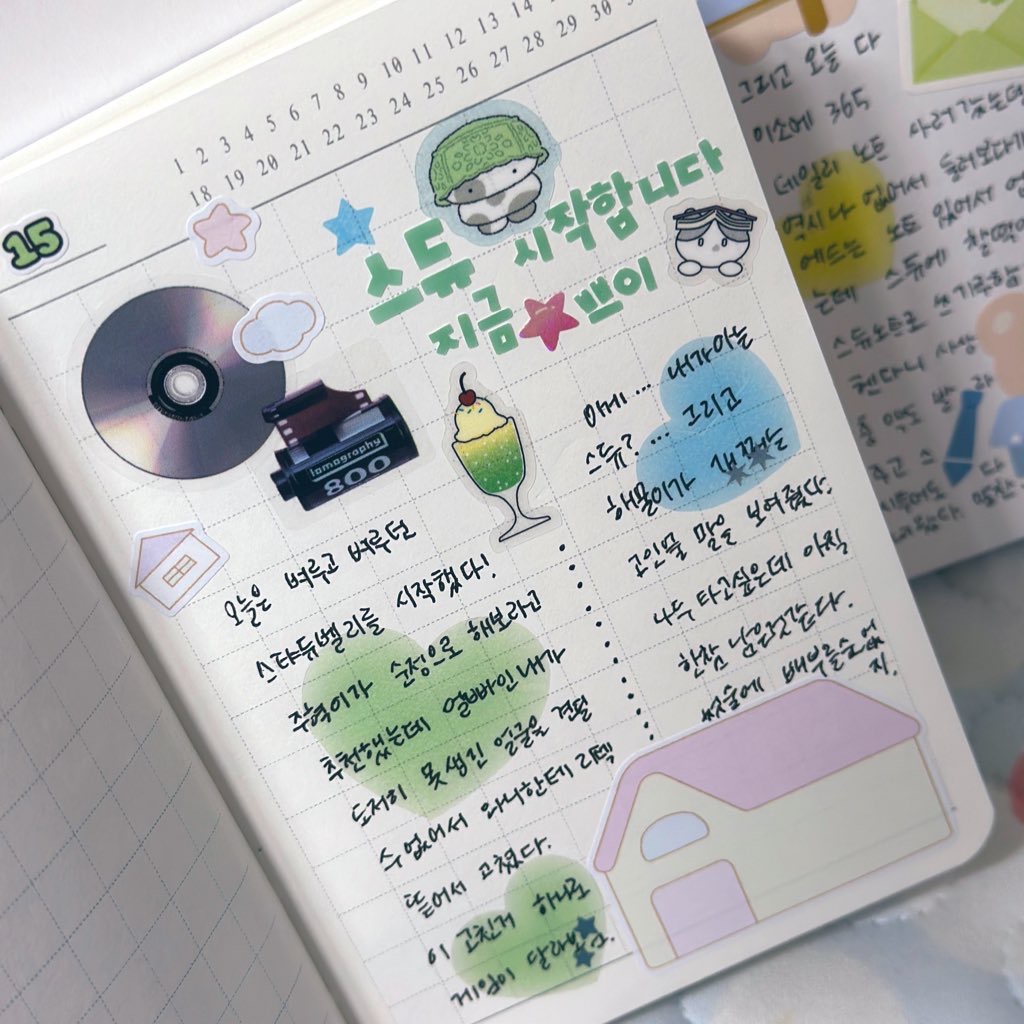 1 2 3 4 5 6 7 8 9 10 11 12 13 14
18 19 20 21 22 23 24 25 26 27 28 29 30
15
스듀 시작합니다
지금 쁘이
lomography
800
오늘은 벼루고 벼루던
스타듀밸리를 시작했다!
주혁이가 순정으로 해보라고
추천했는데 얼빠인 내가
도저히 못생긴 얼굴을 견딜
수 없어서 와니한테 리텍
뜯어서 고쳤다.
이 고친거 하나로
게임이
아니… 내가 아는
스듀? … 그리고
해물이가 개쩌는
고인물 말을 보여줬다.
나두 타고싶은데 아직
한참 남은것같다.
첫술에 배부를순 없
지.
그리고 오늘 다
이소에 365
데일리 노트 사러 갔는데
역시나 없어서 둘러보다
에드는 노트 있어서
는데 스듀에 찰떡이
스듀노트로 쓰기로함